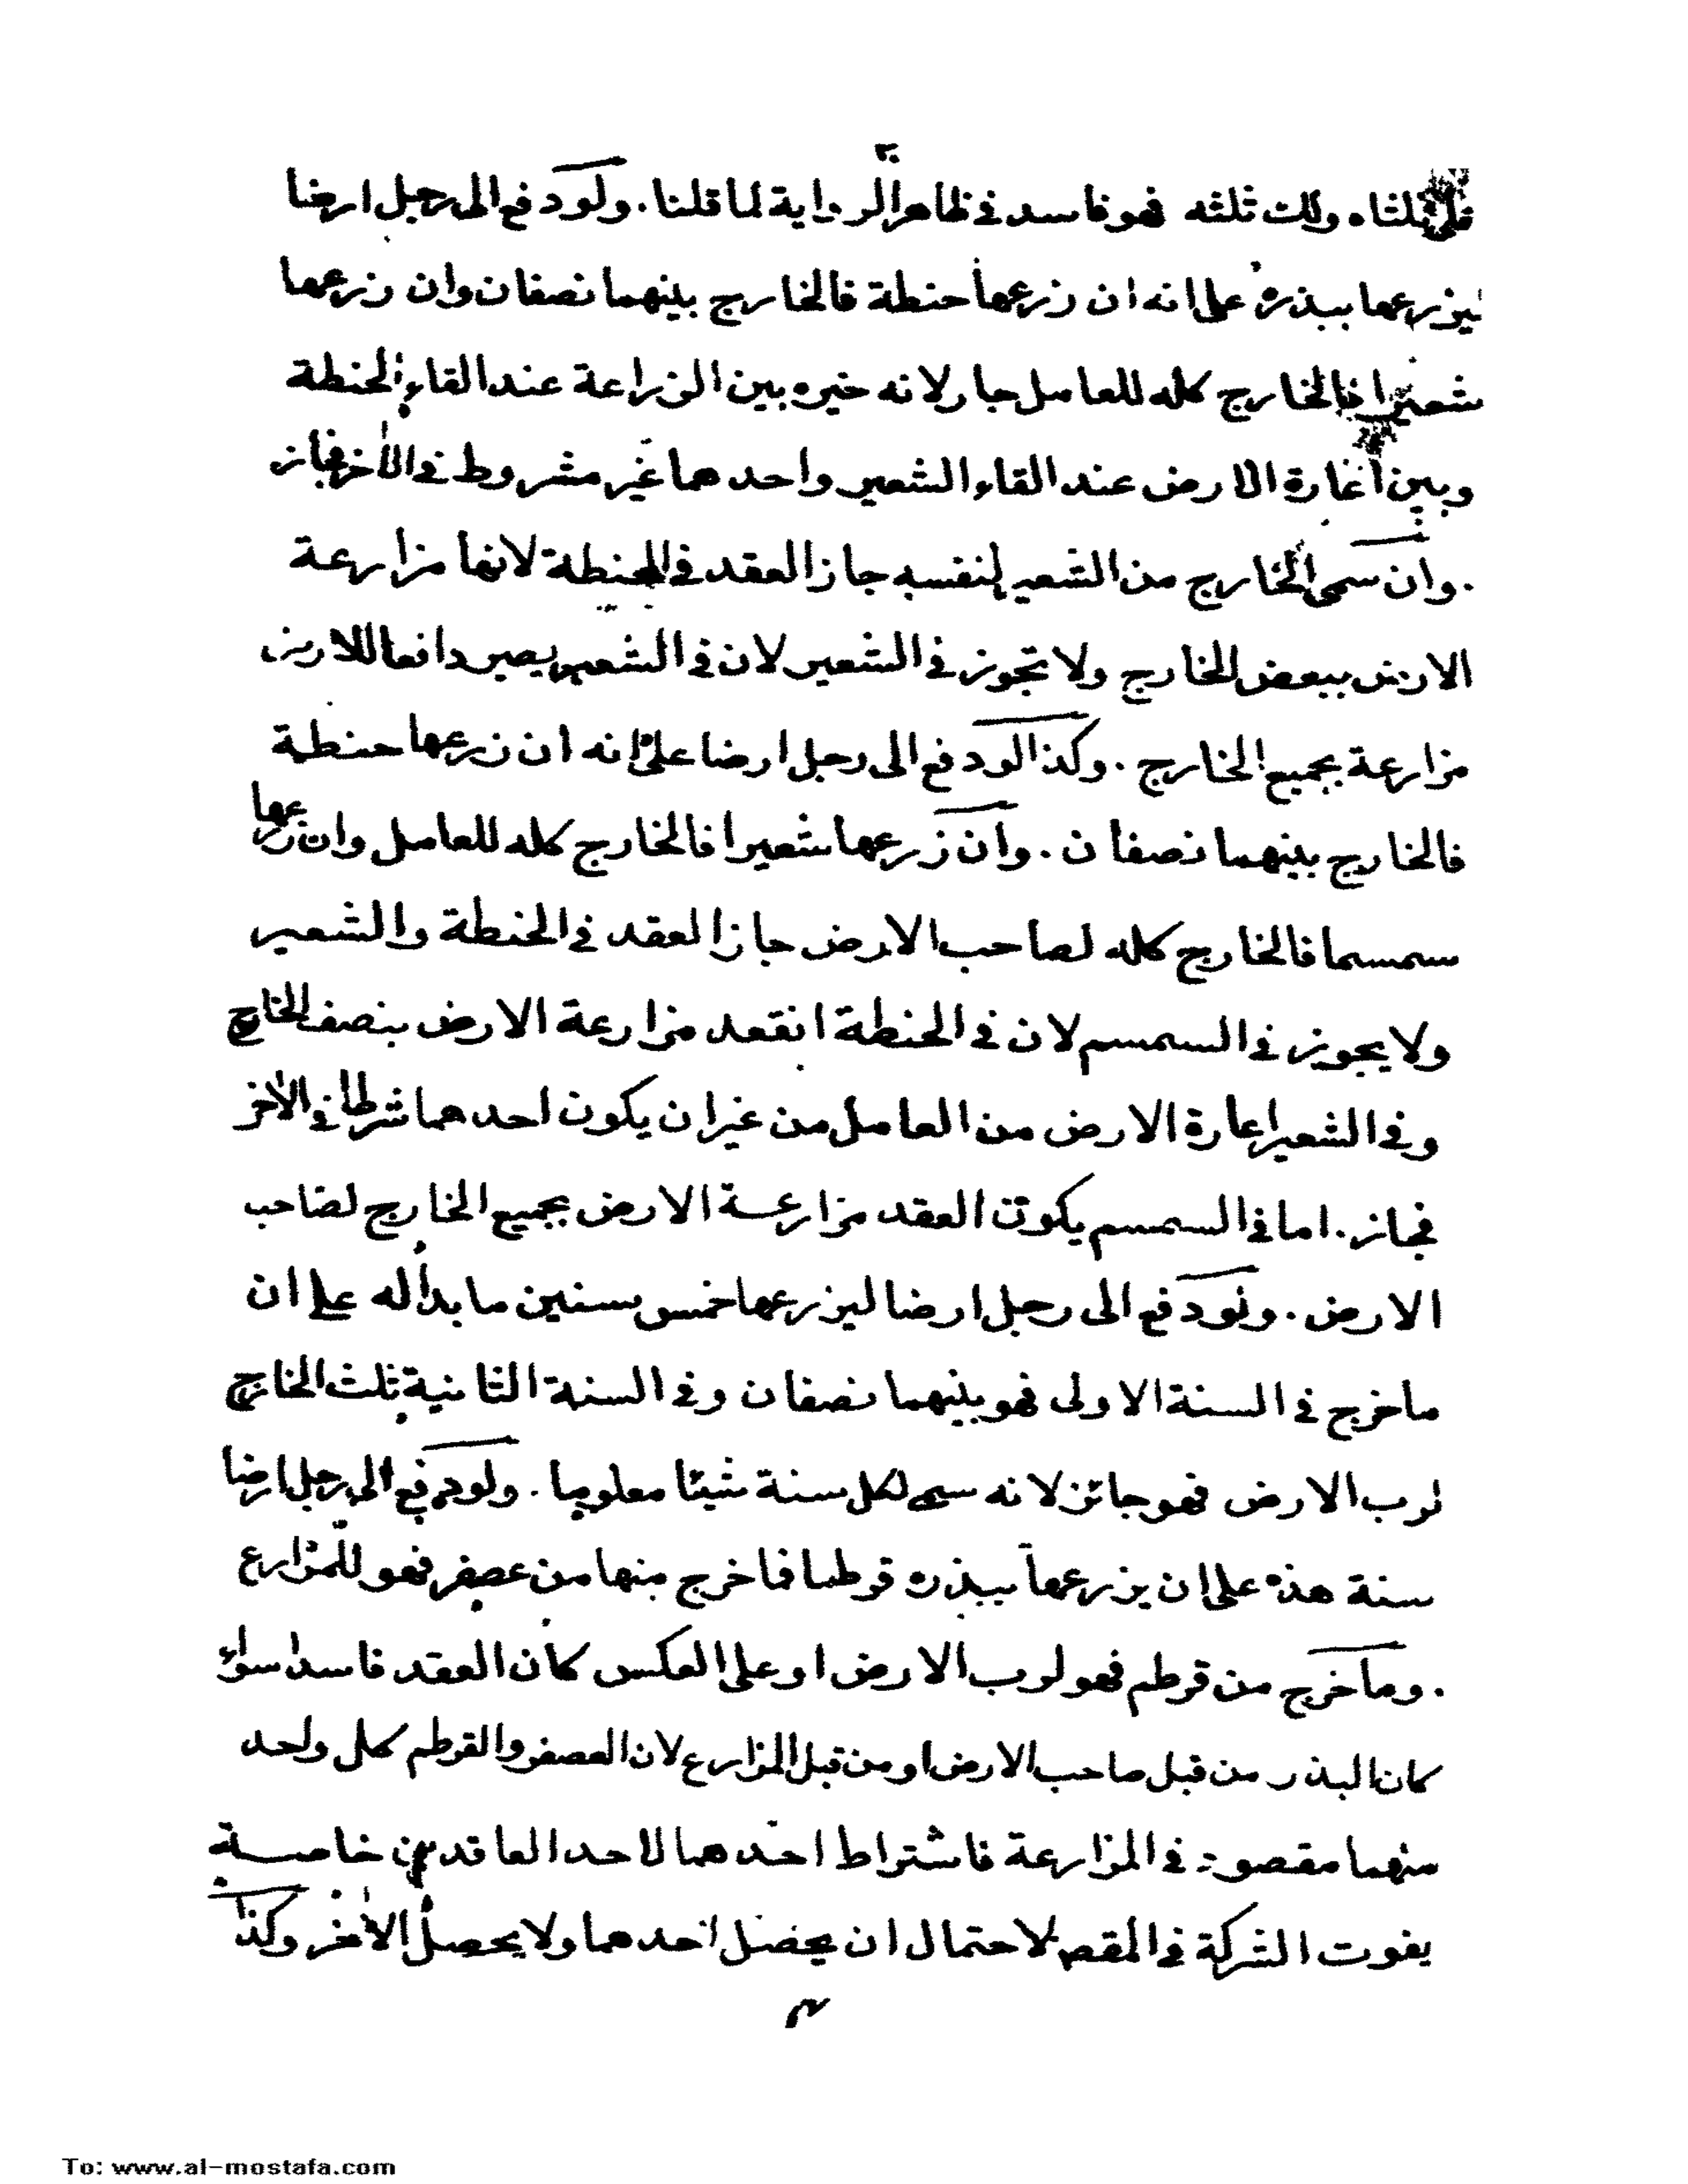 فلى ثلثاه ولك ثلثه فهو فاسد في ظاهر الرواية لما قلنا. ولو دفع الى رجل ارضا
ليزرعها ببذره على انه ان زرعها حنطة فالخارج بينهما نصفان وان زرعها
شعيرا فالخارج كله للعامل جاز لانه خيره بين الزراعة عند القاء الحنطة
وبين اعارة الارض عند القاء الشعير واحدهما غير مشروط في الآخر فجاز
. وان سمى الخارج من الشعير لنفسه جاز العقد في الحنطة لانها مزارعة
الارض ببعض الخارج ولا تجوز في الشعير لان في الشعير يصير دافعا للارض
مزارعة بجميع الخارج. وكذا لو دفع الى رجل ارضا على انه ان زرعها حنطة
فالخارج بينهما نصفان. وان زرعها شعيرا فالخارج كله للعامل وان زرعها
سمسما فالخارج كله لصاحب الارض جاز العقد في الحنطة والشعير
ولا يجوز في السمسم لان في الحنطة انعقد مزارعة الارض بنصف الخارج
وفى الشعير اعارة الارض من العامل من غير ان يكون احدهما شرطا في الآخر
فجاز. اما في السمسم يكون العقد مزارعة الارض بجميع الخارج لصاحب
الارض. ولو دفع الى رجل ارضا ليزرعها خمس سنين ما بدا له على ان
ما خرج في السنة الاولى فهو بينهما نصفان وفى السنة الثانية ثلث الخارج
لرب الارض فهو جائز لانه سمى لكل سنة شيئا معلوما. ولو دفع الى رجل ارضا
سنة هذه على ان يزرعها ببذره قرطما فما خرج منها من عصفر فهو للمزارع
. وما خرج من قرطم فهو لرب الارض او على العكس كان العقد فاسدا سواء
كان البذر من قبل صاحب الارض او من قبل المزارع لان العصفر والقرطم كل واحد
منهما مقصود في المزارعة فاشتراط احدهما لاحد العاقدين خاصة
يفوت الشركة في المقص لاحتمال ان يحصل احدهما ولا يحصل الآخر وكذا
To: www.al-mostafa.com